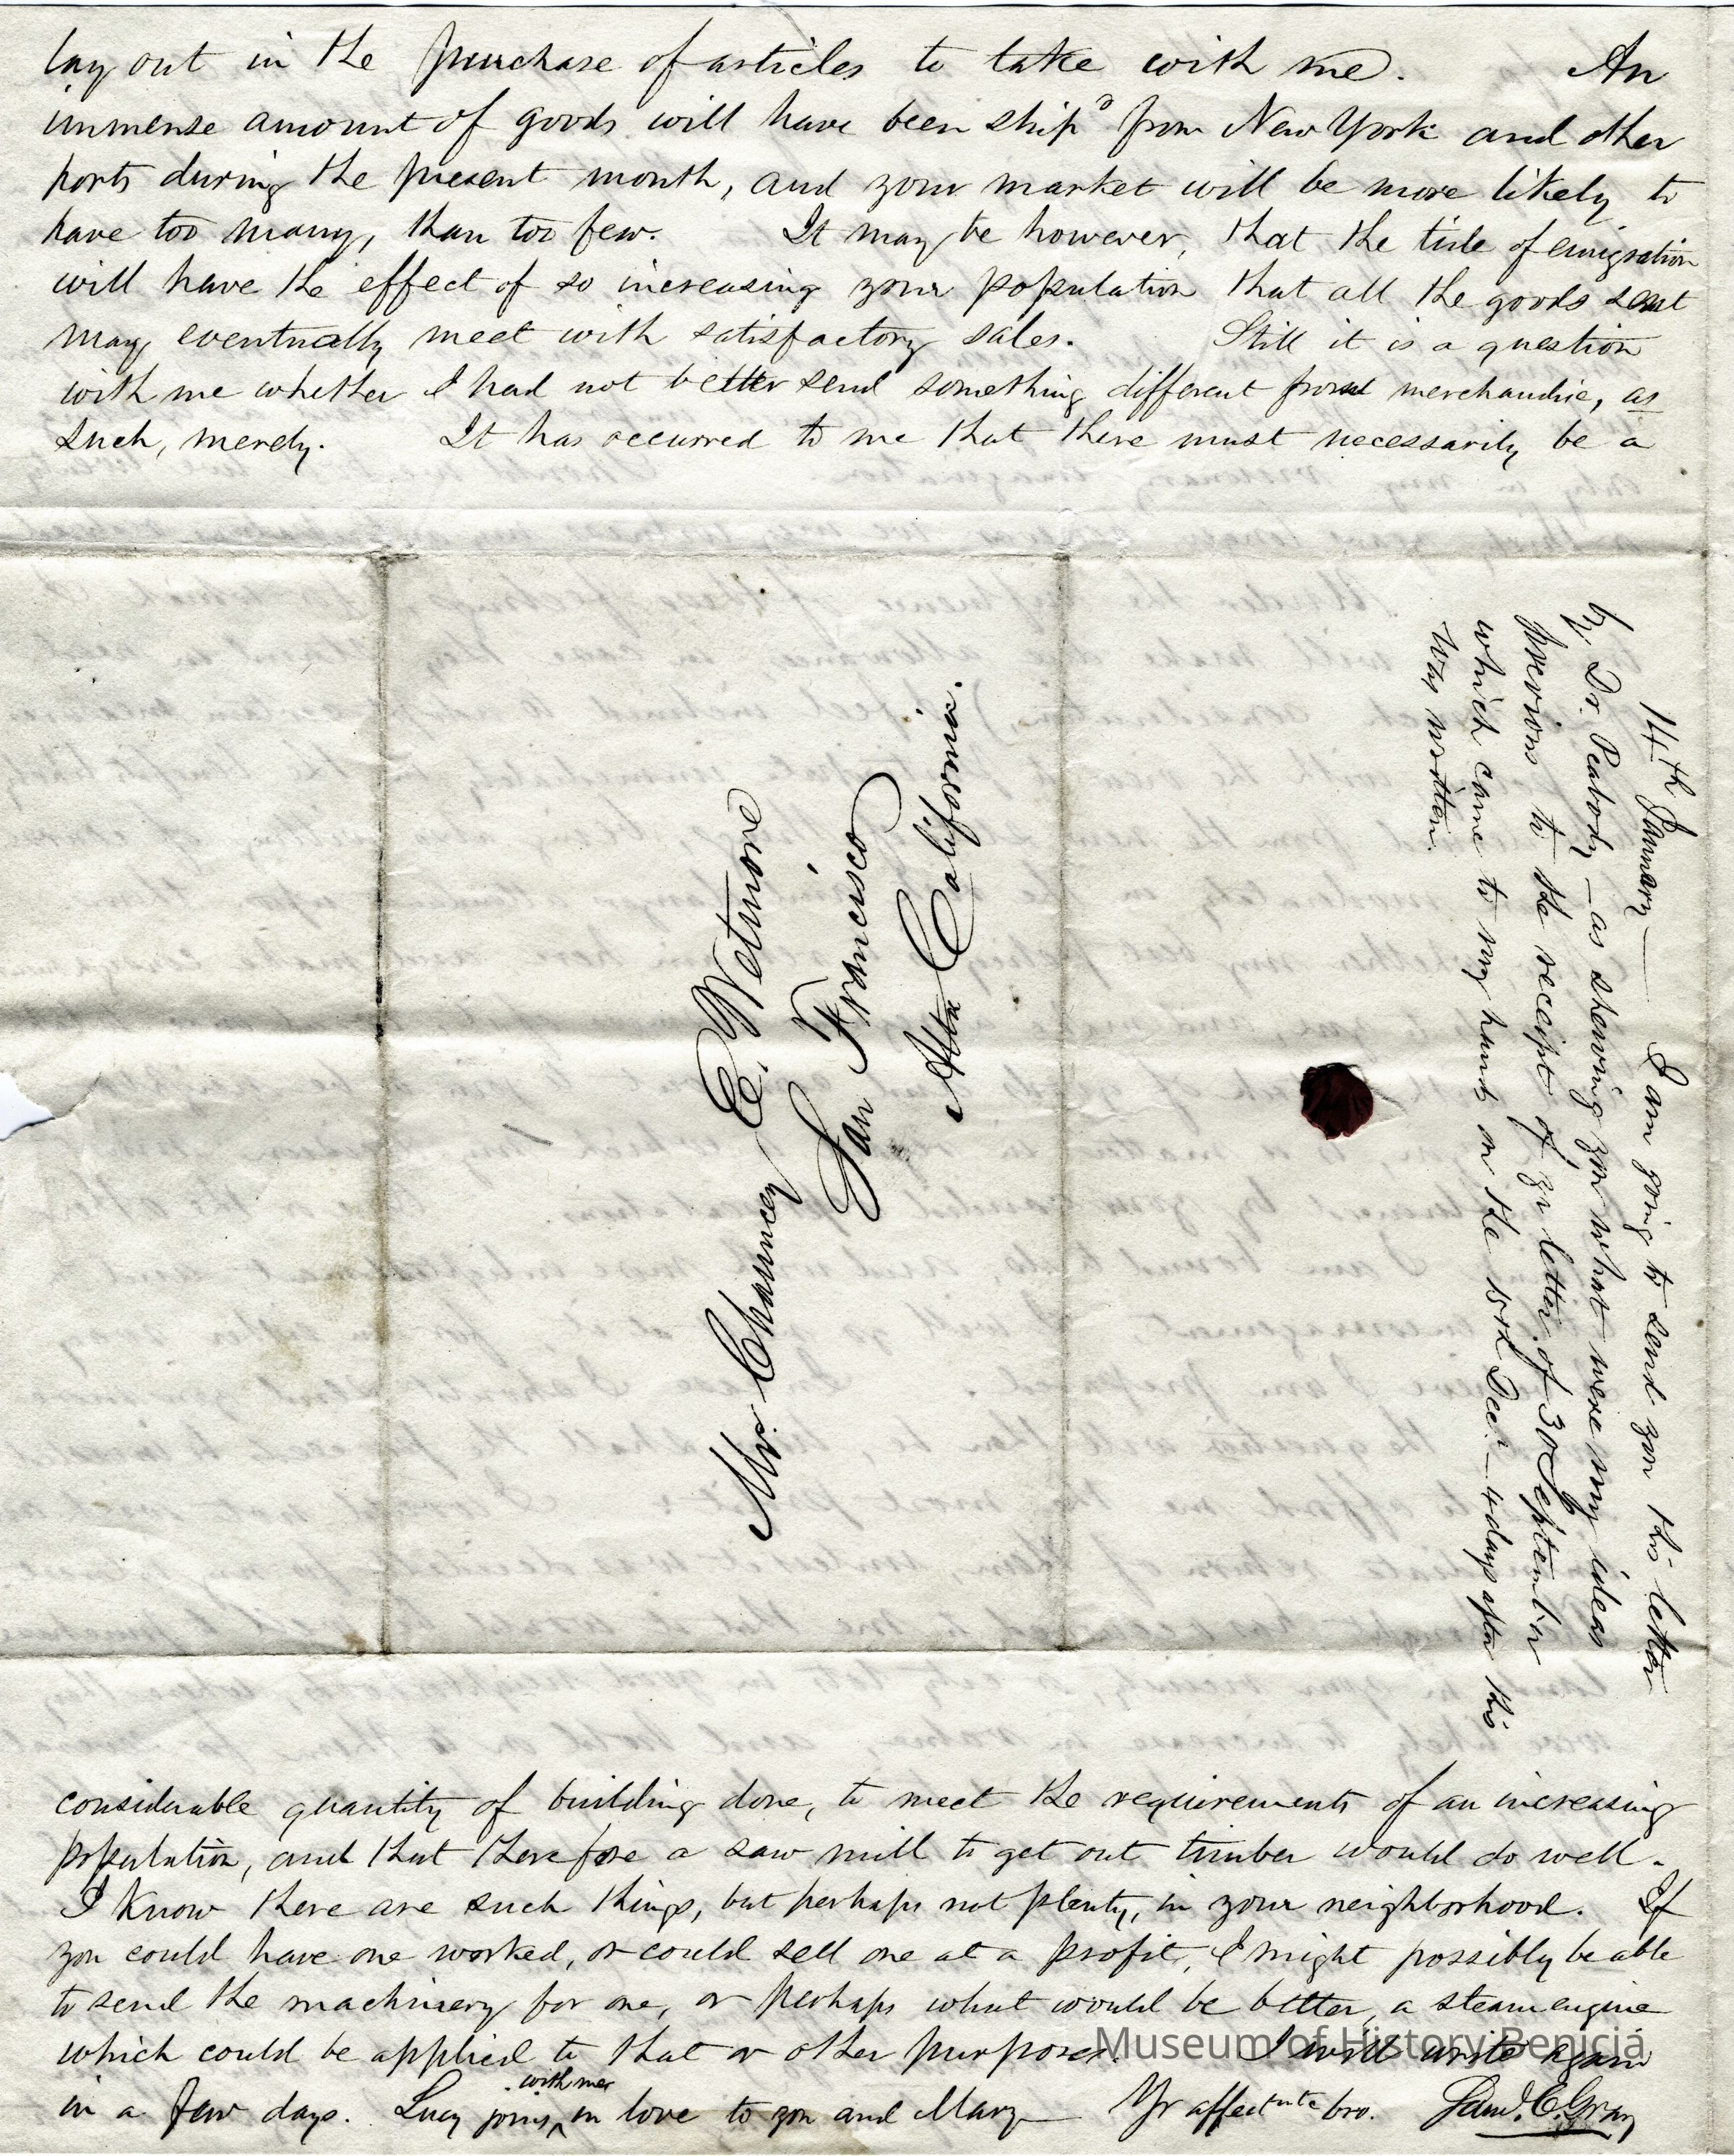 lay out in the purchase of articles to take with me. An
immense amount of goods will have been ship^d from New York and other
ports during the present month, and your market will be more likely to
have too many, than too few. It may be however, that the tide of emigration
will have the effect of so increasing your population that all the goods sent
may eventually meet with satisfactory sales. Still it is a question
with me whether I had not better send something different from merchandise, as
such, merely. It has occurred to me that there must necessarily be a
Mr. Chauncey C. Wetmore
San Francisco
Alta California.
14th January — I am going to send you this letter
by Dr. Peabody — as showing you what were my ideas
previous to the receipt of yr letter of 30 September
which came to my hands on the 15th Decr. — 4 days after this
was written.
considerable quantity of building done, to meet the requirements of an increasing
population, and that therefore a saw mill to get out timber would do well.
I know there are such things, but perhaps not plenty, in your neighborhood. If
you could have one worked, or could sell one at a profit, I might possibly be able
to send the machinery for one, or perhaps what would be better, a steam engine
which could be applied to that or other purposes. I will write again
in a few days. Lucy joins with me in love to you and Mary — Yr affectnate bro. Saml. C. Gray
Museum of History Benicia